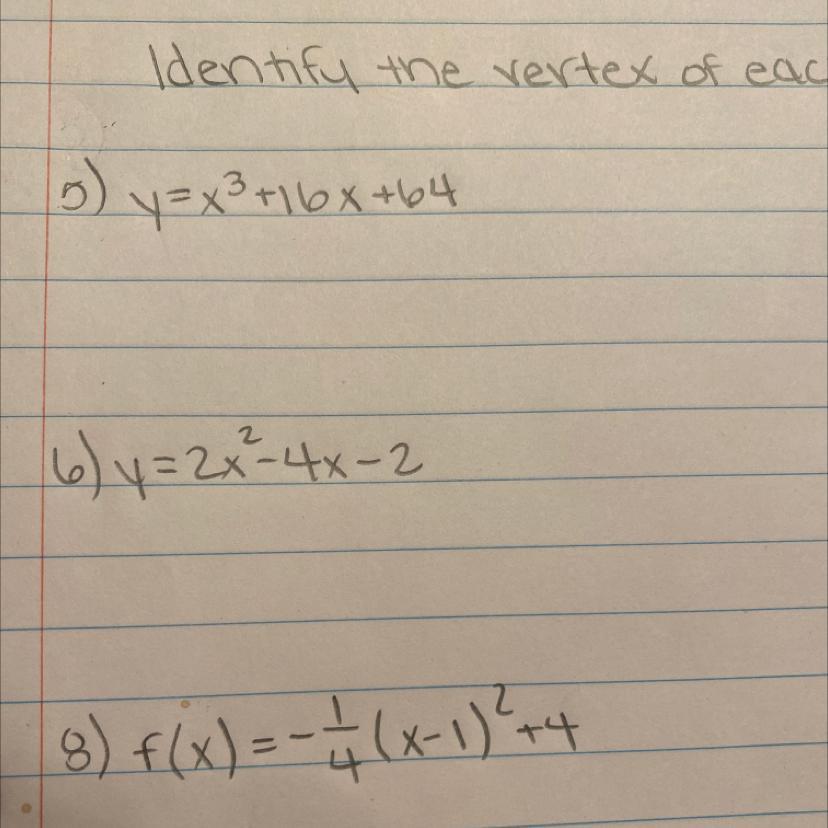 Identify the vertex of eac
5) y=x³+16x+64
6) y=2x²-4x-2
8) f(x)=-1/4(x-1)²+4